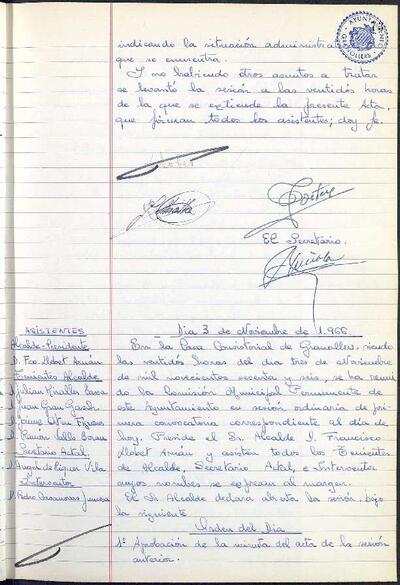 indicando la situación administrat
que se encuentra.
Y no habiendo otros asuntos a tratar
se levantó la sesión a las veintidós horas
de la que se extiende la presente Acta,
que firman todos los asistentes; doy fe.
AYUNTAMIENTO
GRANOLLERS
El Secretario.
ASISTENTES
Alcalde-Presidente
D. Fco. Llobet Arnán
Tenientes Alcalde
D. Ramón Valls
Secretario Actal.
Interventor
Dia 3 de Noviembre de 1.966
En la Casa Consistorial de Granollers, siendo
las veintidós horas del dia tres de Noviembre
de mil novecientos sesenta y seis, se ha reuni
do la Comisión Municipal Permanente de
este Ayuntamiento en sesión ordinaria de pri-
mera convocatoria correspondiente al dia de
hoy. Preside el Sr. Alcalde D. Francisco
Llobet Arnán y asisten todos los Tenientes
de Alcalde, Secretario Actal. e Interventor
cuyos nombres se expresan al margen.
El Sr. Alcalde declara abierta la sesión, bajo
la siguiente
Orden del Dia
1º Aprobación de la minuta del acta de la sesión
anterior.